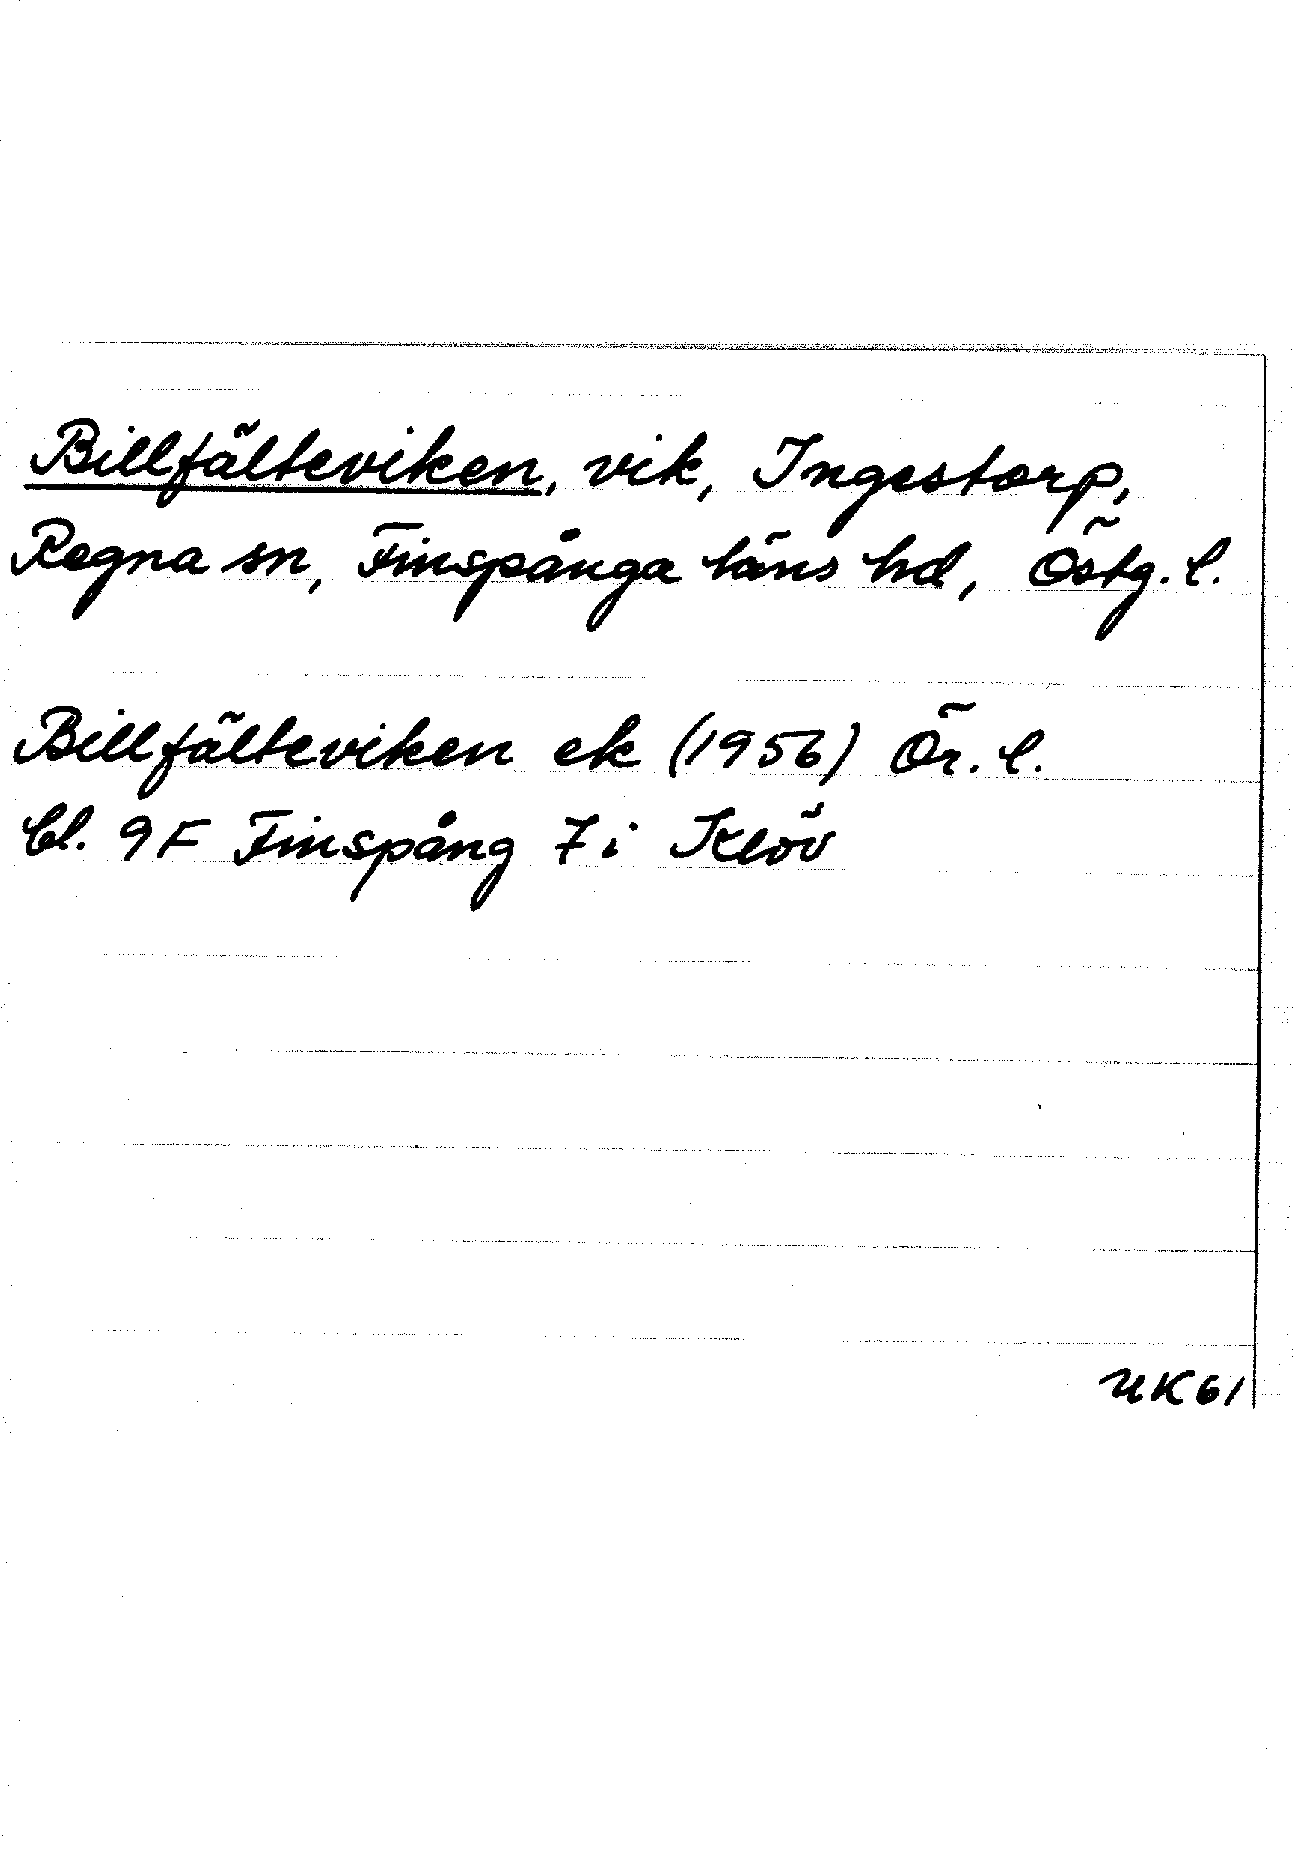 Billfälteviken, vik, Ingestorp,
Regna sn, Finspånga läns hd, Östg. l.
Billfälteviken ek (1956) Ör. l.
bl. 9F Finspång 7i Klöv
UK61